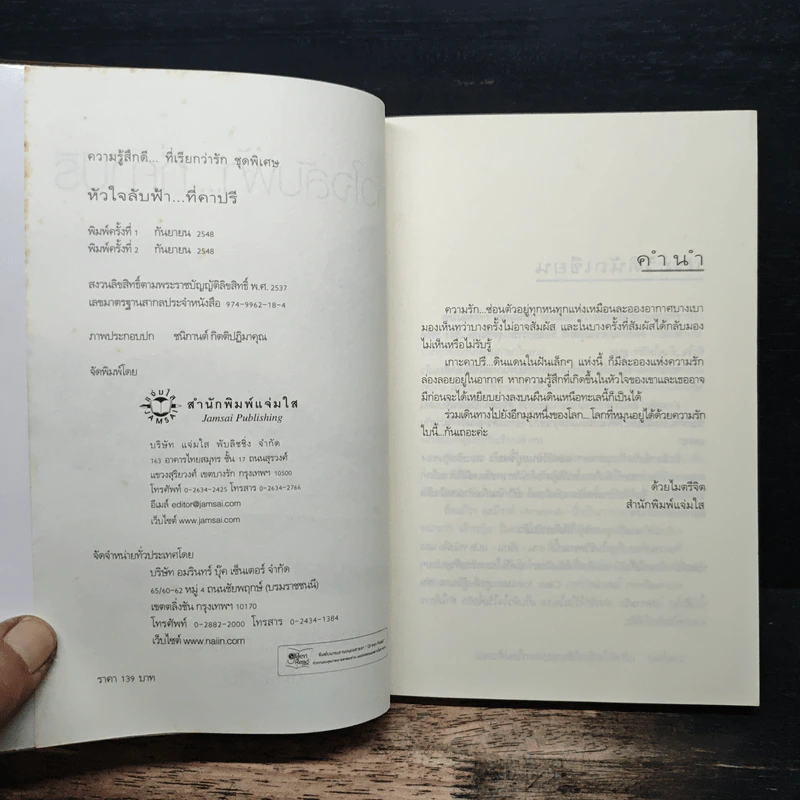 ความรู้สึกดี... ที่เรียกว่ารัก ชุดพิเศษ
หัวใจลับฟ้า...ที่คาปรี
พิมพ์ครั้งที่ 1 กันยายน 2548
พิมพ์ครั้งที่ 2 กันยายน 2548
สงวนลิขสิทธิ์ตามพระราชบัญญัติลิขสิทธิ์ พ.ศ. 2537
เลขมาตรฐานสากลประจำหนังสือ 974-9962-18-4
ภาพประกอบปก ชนิกานต์ กิตติปฎิมาคุณ
จัดพิมพ์โดย
แจ่มใส
JAMSAI
สำนักพิมพ์แจ่มใส
Jamsai Publishing
บริษัท แจ่มใส พับลิชชิ่ง จำกัด
163 อาคารไทยสมุทร ชั้น 17 ถนนสุรวงศ์
แขวงสุริยวงศ์ เขตบางรัก กรุงเทพฯ 10500
โทรศัพท์ 0-2634-2425 โทรสาร 0-2634-2766
อีเมล์ editor@jamsai.com
เว็บไซต์ www.jamsai.com
จัดจำหน่ายทั่วประเทศโดย
บริษัท อมรินทร์ บุ๊ค เซ็นเตอร์ จำกัด
65/60-62 หมู่ 4 ถนนชัยพฤกษ์ (บรมราชชนนี)
เขตตลิ่งชัน กรุงเทพฯ 10170
โทรศัพท์ 0-2882-2000 โทรสาร 0-2434-1384
เว็บไซต์ www.naiin.com
ราคา 139 บาท
คำนำ
ความรัก...ซ่อนตัวอยู่ทุกหนทุกแห่งเหมือนละอองอากาศบางเบา
มองเห็นทว่าบางครั้งไม่อาจสัมผัส และในบางครั้งที่สัมผัสได้กลับมอง
ไม่เห็นหรือไม่รับรู้
เกาะคาปรี...ดินแดนในฝันเล็กๆ แห่งนี้ ก็มีละอองแห่งความรัก
ล่องลอยอยู่ในอากาศ หากความรู้สึกที่เกิดขึ้นในหัวใจของเขาและเธออาจ
มีก่อนจะได้เหยียบย่างลงบนผืนดินเหนือทะเลนี้ก็เป็นได้
ร่วมเดินทางไปยังอีกมุมหนึ่งของโลก...โลกที่หมุนอยู่ได้ด้วยความรัก
ใบนี้...กันเถอะค่ะ
ด้วยไมตรีจิต
สำนักพิมพ์แจ่มใส